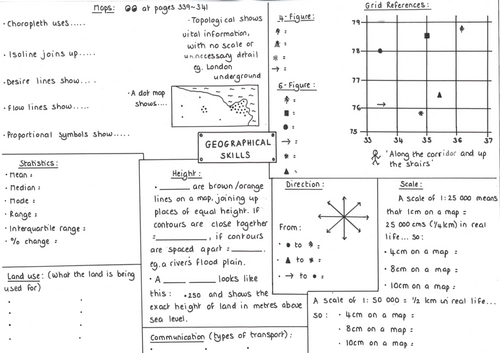 Maps: at pages 339-341
• Choropleth uses.....
• Isoline joins up.....
• Desire lines show....
• Flow lines show.....
• Proportional symbols show.....
• Topological shows
vital information,
with no scale or
unnecessary detail
eg. London
underground
• A dot map
shows....
4-Figure:
=
=
=
=
=
→ =
6-Figure:
=
=
=
→ =
=
=
Grid References:
79
78
77
76
75
33 34 35 36 37
'Along the corridor and up
the stairs'
GEOGRAPHICAL
SKILLS
Statistics:
• Mean =
• Median =
• Mode =
• Range =
• Interquartile range =
• % change =
Land use: (What the land is being
used for)
Height:
• ______ are brown/orange
lines on a map, joining up
places of equal height. If
contours are close together
=________, if contours
are spaced apart =______.
eg. a river's flood plain.
• A ____ ____ looks like
this: •250 and shows the
exact height of land in metres above
sea level.
Communication (types of transport):
Direction:
From:
• ● to =
• ▲ to =
• → to ● =
Scale:
A scale of 1:25 000 means
that 1cm on a map =
25 000 cms (1/4 km) in real
life... so:
• 4cm on a map =
• 8cm on a map =
• 10cm on a map =
A scale of 1:50 000 = 1/2 km in real life...
so: • 4cm on a map =
• 8cm on a map =
• 10cm on a map =